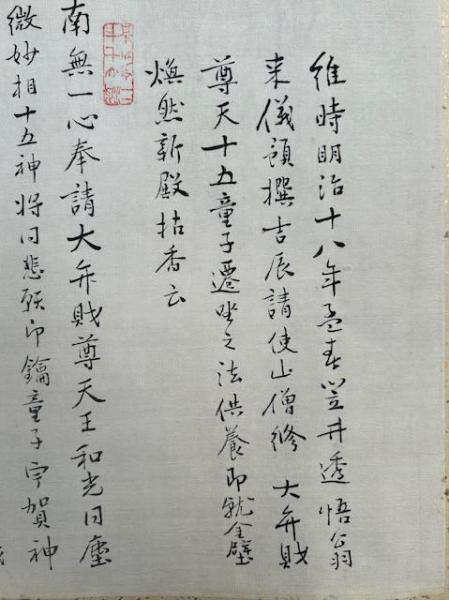 維時明治十八年孟春笠井透悟翁
来儀預撰吉辰請使山僧修 大弁財
尊天十五童子遷坐之法供養即就金壁
煥然新殿拈香云
南無一心奉請大弁財尊天王和光同塵
微妙相十五神将同悲願印鑰童子宇賀神